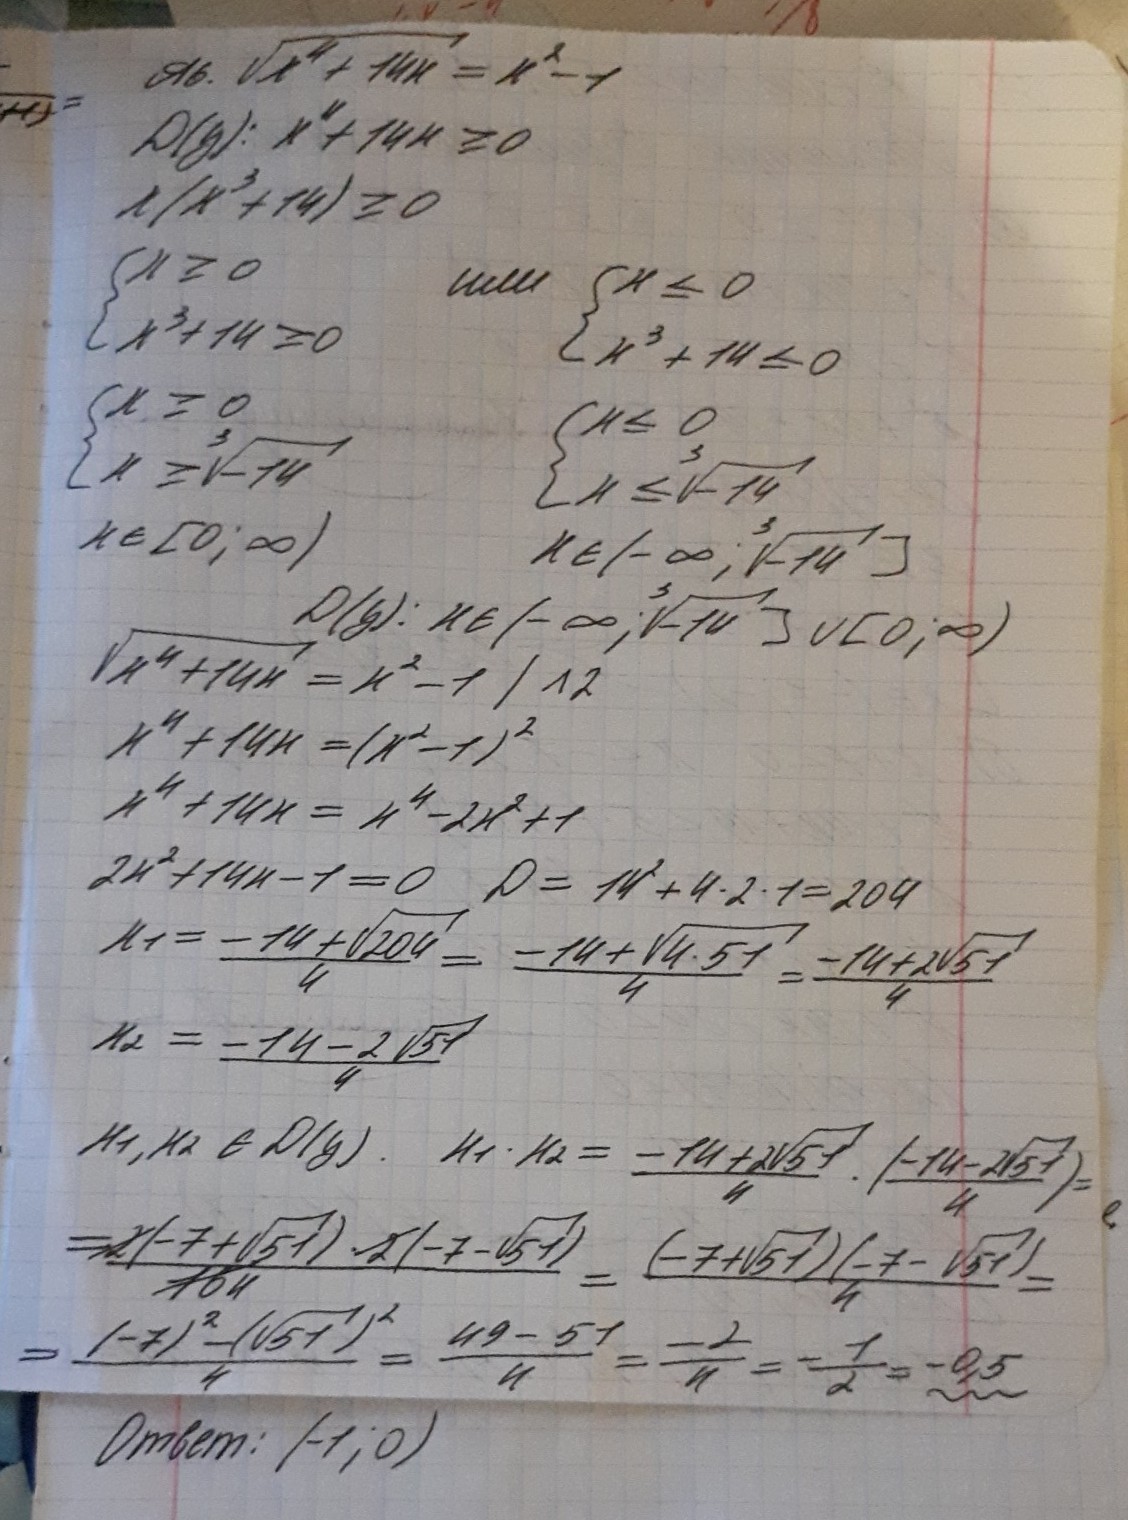 √(x⁴+14x) = x²-1
D(y): x⁴+14x ≥ 0
x(x³+14) ≥ 0
{x ≥ 0 или {x ≤ 0
x³+14 ≥ 0 x³+14 ≤ 0
{x ≥ 0 {x ≤ 0
x ≥ ³√-14 x ≤ ³√-14
x∈[0; ∞) x∈(-∞; ³√-14]
D(y): x∈(-∞; ³√-14]∪[0; ∞)
√(x⁴+14x) = x²-1 / ^2
x⁴+14x = (x²-1)²
x⁴+14x = x⁴-2x²+1
2x²+14x-1=0 D = 14²+4·2·1=204
x₁ = (-14+√204)/4 = (-14+√(4·51))/4 = (-14+2√51)/4
x₂ = (-14-2√51)/4
x₁, x₂ ∈ D(y). x₁·x₂ = (-14+2√51)/4 · ((-14-2√51)/4) =
= 2(-7+√51)·2(-7-√51)/ = (-7+√51)(-7-√51)/4 =
= ((-7)²-(√51)²)/4 = (49-51)/4 = -2/4 = -1/2 = -0,5
Ответ: (-1; 0)